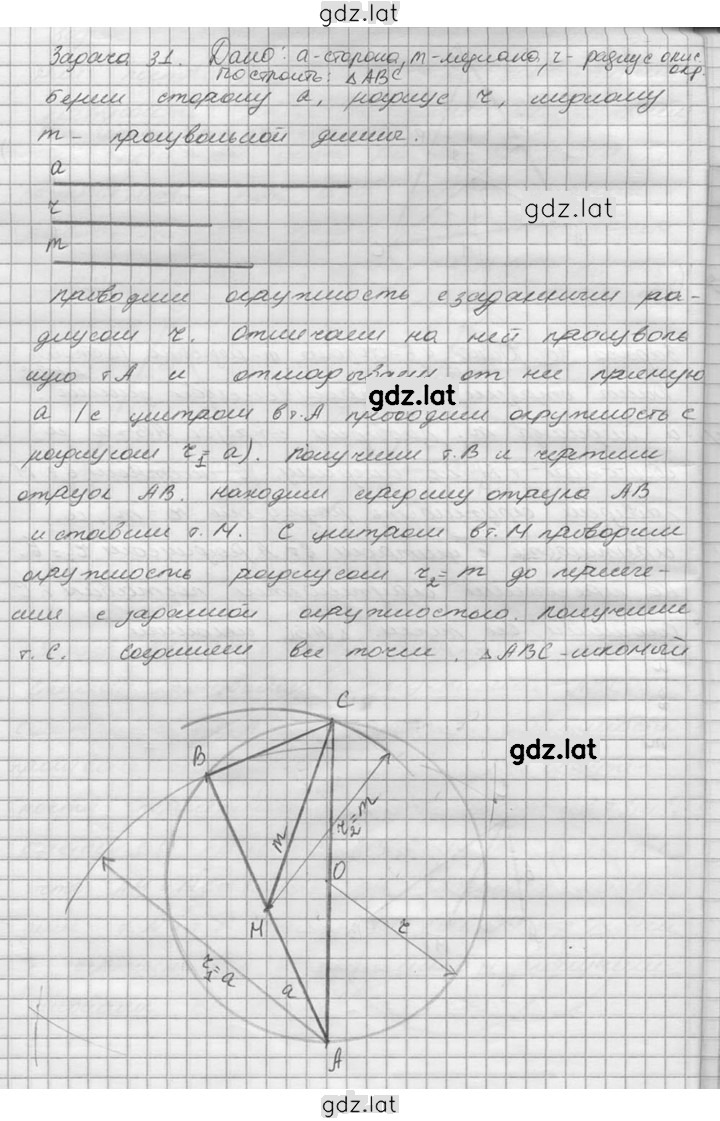 gdz.lat
Задача 31. Дано: a-сторона, m-медиана, r- радиус опис. окр.
построить: △ABC
берем сторону a, радиус r, медиану
m - произвольной длины.
a
r
gdz.lat
m
проводим окружность с заданным ра-
диусом r. Отмечаем на ней произволь
ную т.A и откладываем от нее прямую
gdz.lat
a (с центром в т.A проводим окружность с
радиусом r₁=a). Получим т.B и чертим
отрезок AB. Находим середину отрезка AB
и ставим т.M. С центром в т.M проводим
окружность радиусом r₂=m до пересече-
ния с заданной окружностью. Получим
т.C. Соединяем все точки. △ABC-искомый
C
B
gdz.lat
m
r₂=m
O
M
r
r₁=a
a
A
gdz.lat